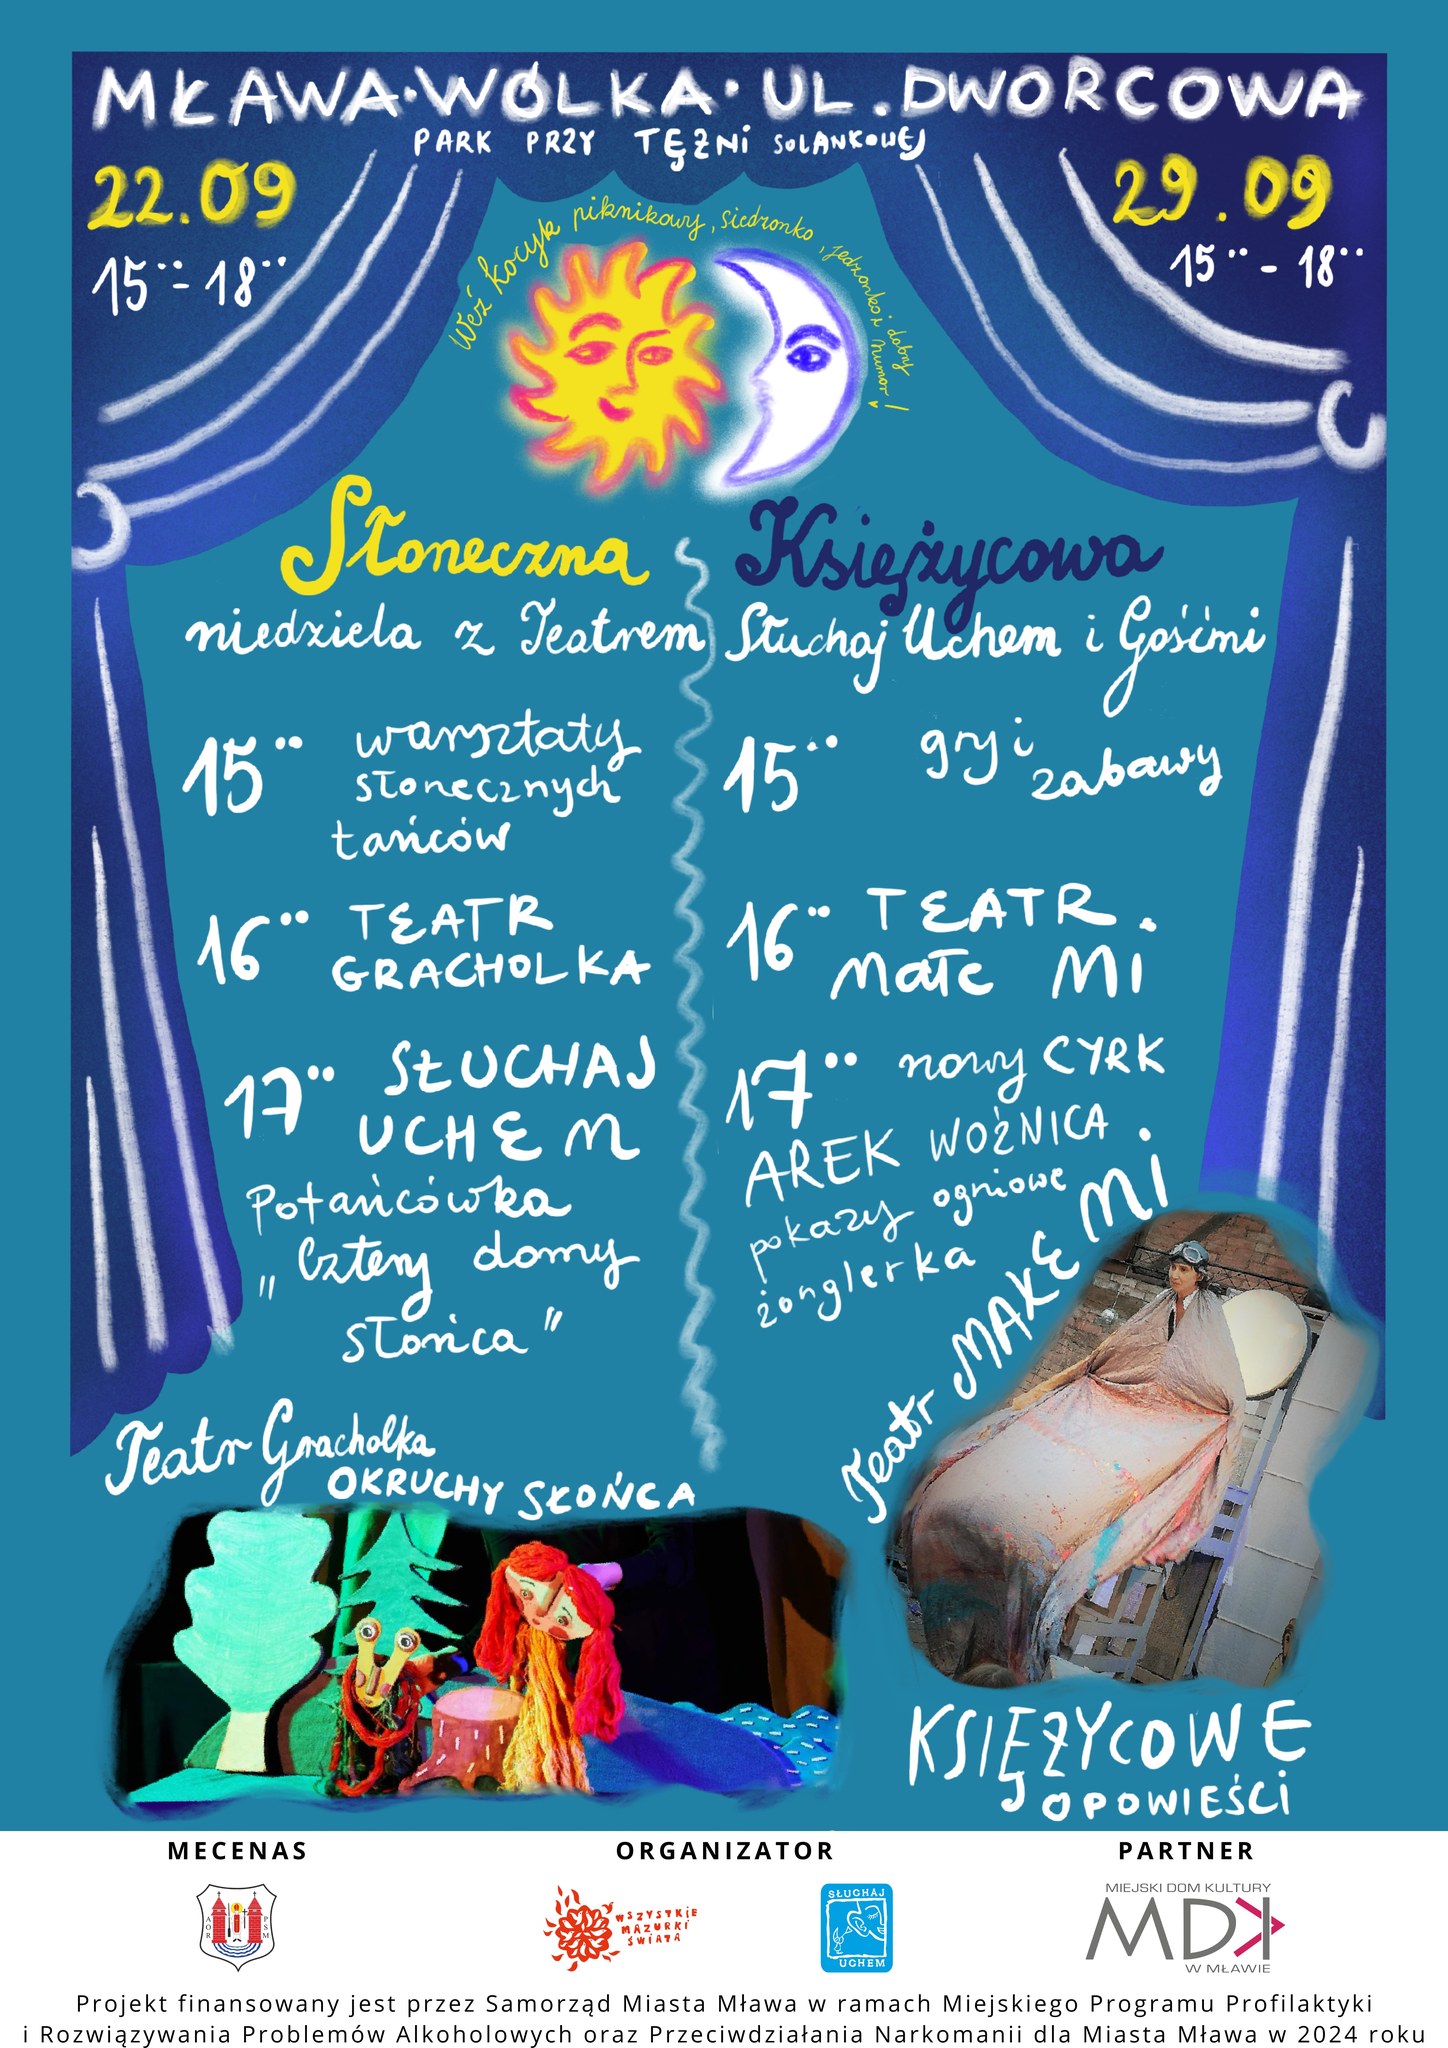 MŁAWA·WÓLKA· UL. DWORCOWA
PARK PRZY TĘŻNI SOLANKOWEJ
22.09
15°°- 18°°
29.09
15°° - 18°°
Weź kocyk piknikowy, siedzonko, jedzonko i dobry humor!
Słoneczna
niedziela z Teatrem
15°° warsztaty
słonecznych
tańców
16°° TEATR
GRACHOLKA
17°° SŁUCHAJ
UCHEM
Potańcówka
„Cztery domy
słońca"
Teatr Gracholka
OKRUCHY SŁOŃCA
Księżycowa
Słuchaj Uchem i Gośćmi
15°° gry i
zabawy
16°° TEATR
Małe MI
17°° nowy CYRK
AREK WOŹNICA
pokazy ogniowe
żonglerka
Teatr MAŁE MI
KSIĘŻYCOWE
OPOWIEŚCI
MECENAS
ORGANIZATOR
PARTNER
AOR
PSM
WSZYSTKIE
MAZURKI
ŚWIATA
SŁUCHAJ
UCHEM
MIEJSKI DOM KULTURY
MDK
W MŁAWIE
Projekt finansowany jest przez Samorząd Miasta Mława w ramach Miejskiego Programu Profilaktyki
i Rozwiązywania Problemów Alkoholowych oraz Przeciwdziałania Narkomanii dla Miasta Mława w 2024 roku